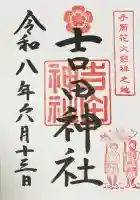 手筒花火発祥之地
吉田神社
令和八年六月十三日